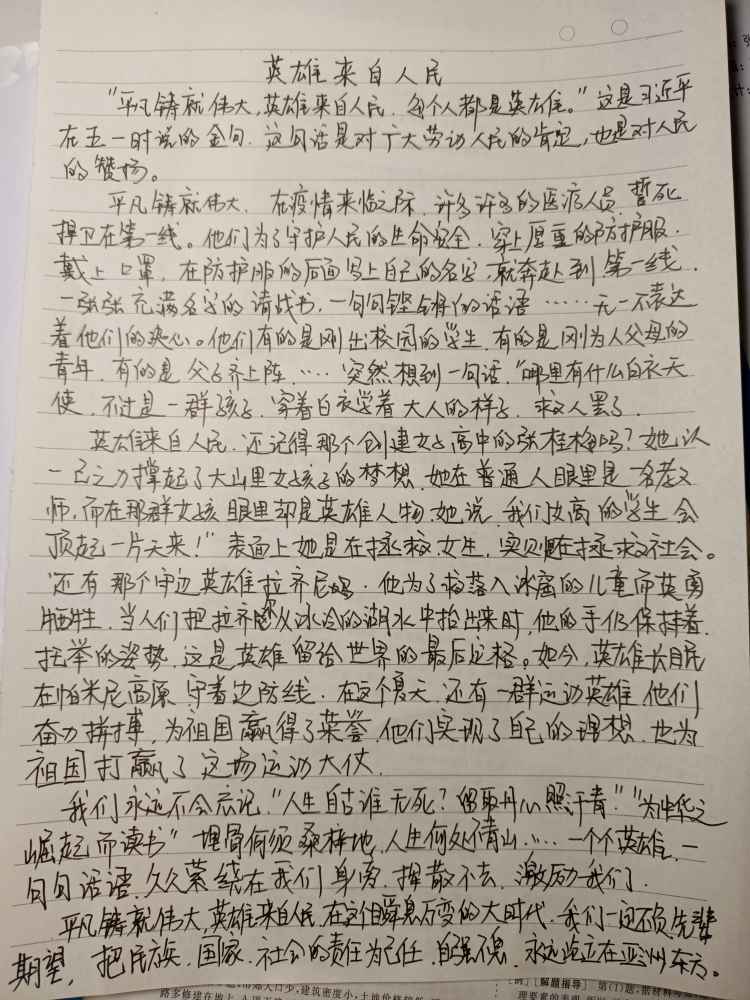 英雄来自人民
“平凡铸就伟大,英雄来自人民,每个人都是英雄。”这是习近平
在五一时说的金句,这句话是对广大劳动人民的肯定,也是对人民
的赞扬。
平凡铸就伟大,在疫情来临之际,许多许多的医疗人员,誓死
捍卫在第一线。他们为了守护人民的生命安全,穿上厚重的防护服,
戴上口罩,在防护服的后面写上自己的名字,就奔赴到第一线,
一张张充满名字的请战书,一句句铿锵的话语……无一不表达
着他们的决心。他们有的是刚出校园的学生,有的是刚为人父母的
青年,有的是父子齐上阵,……突然想到一句话,“哪里有什么白衣天
使,不过是一群孩子,穿着白衣学着大人的样子,救人罢了
英雄来自人民,还记得那个创建女子高中的张桂梅吗?她以
一己之力撑起了大山里女孩子的梦想,她在普通人眼里是一名老
师,而在那群女孩眼里却是英雄人物,她说,我们女高的学生会
顶起一片天来!”表面上她是在拯救女生,实则在拯救社会。
还有那个守边英雄拉齐尼,他为了救落入冰窟的儿童而英勇
牺牲,当人们把拉齐尼从冰冷的湖水中抬出来时,他的手仍保持着
托举的姿势,这是英雄留给世界的最后定格。如今,英雄长眠
在帕米尼高原,守着边防线,在这个夏天,还有一群运动英雄,他们
奋力拼搏,为祖国赢得了荣誉,他们实现了自己的理想,也为
祖国打赢了这场运动大仗.
我们永远不会忘记,“人生自古谁无死?留取丹心照汗青”“为中华之
崛起而读书”埋骨何须桑梓地,人生何处青山……一个个英雄,一
句句话语,久久萦绕在我们身旁,挥散不去,激励我们,
平凡铸就伟大,英雄来自人民,在这个瞬息万变的大时代,我们一定不负先辈
期望,把民族,国家,社会的责任为己任,自强不息,永远屹立在亚洲东方。
[解题指导] 第(1)题,